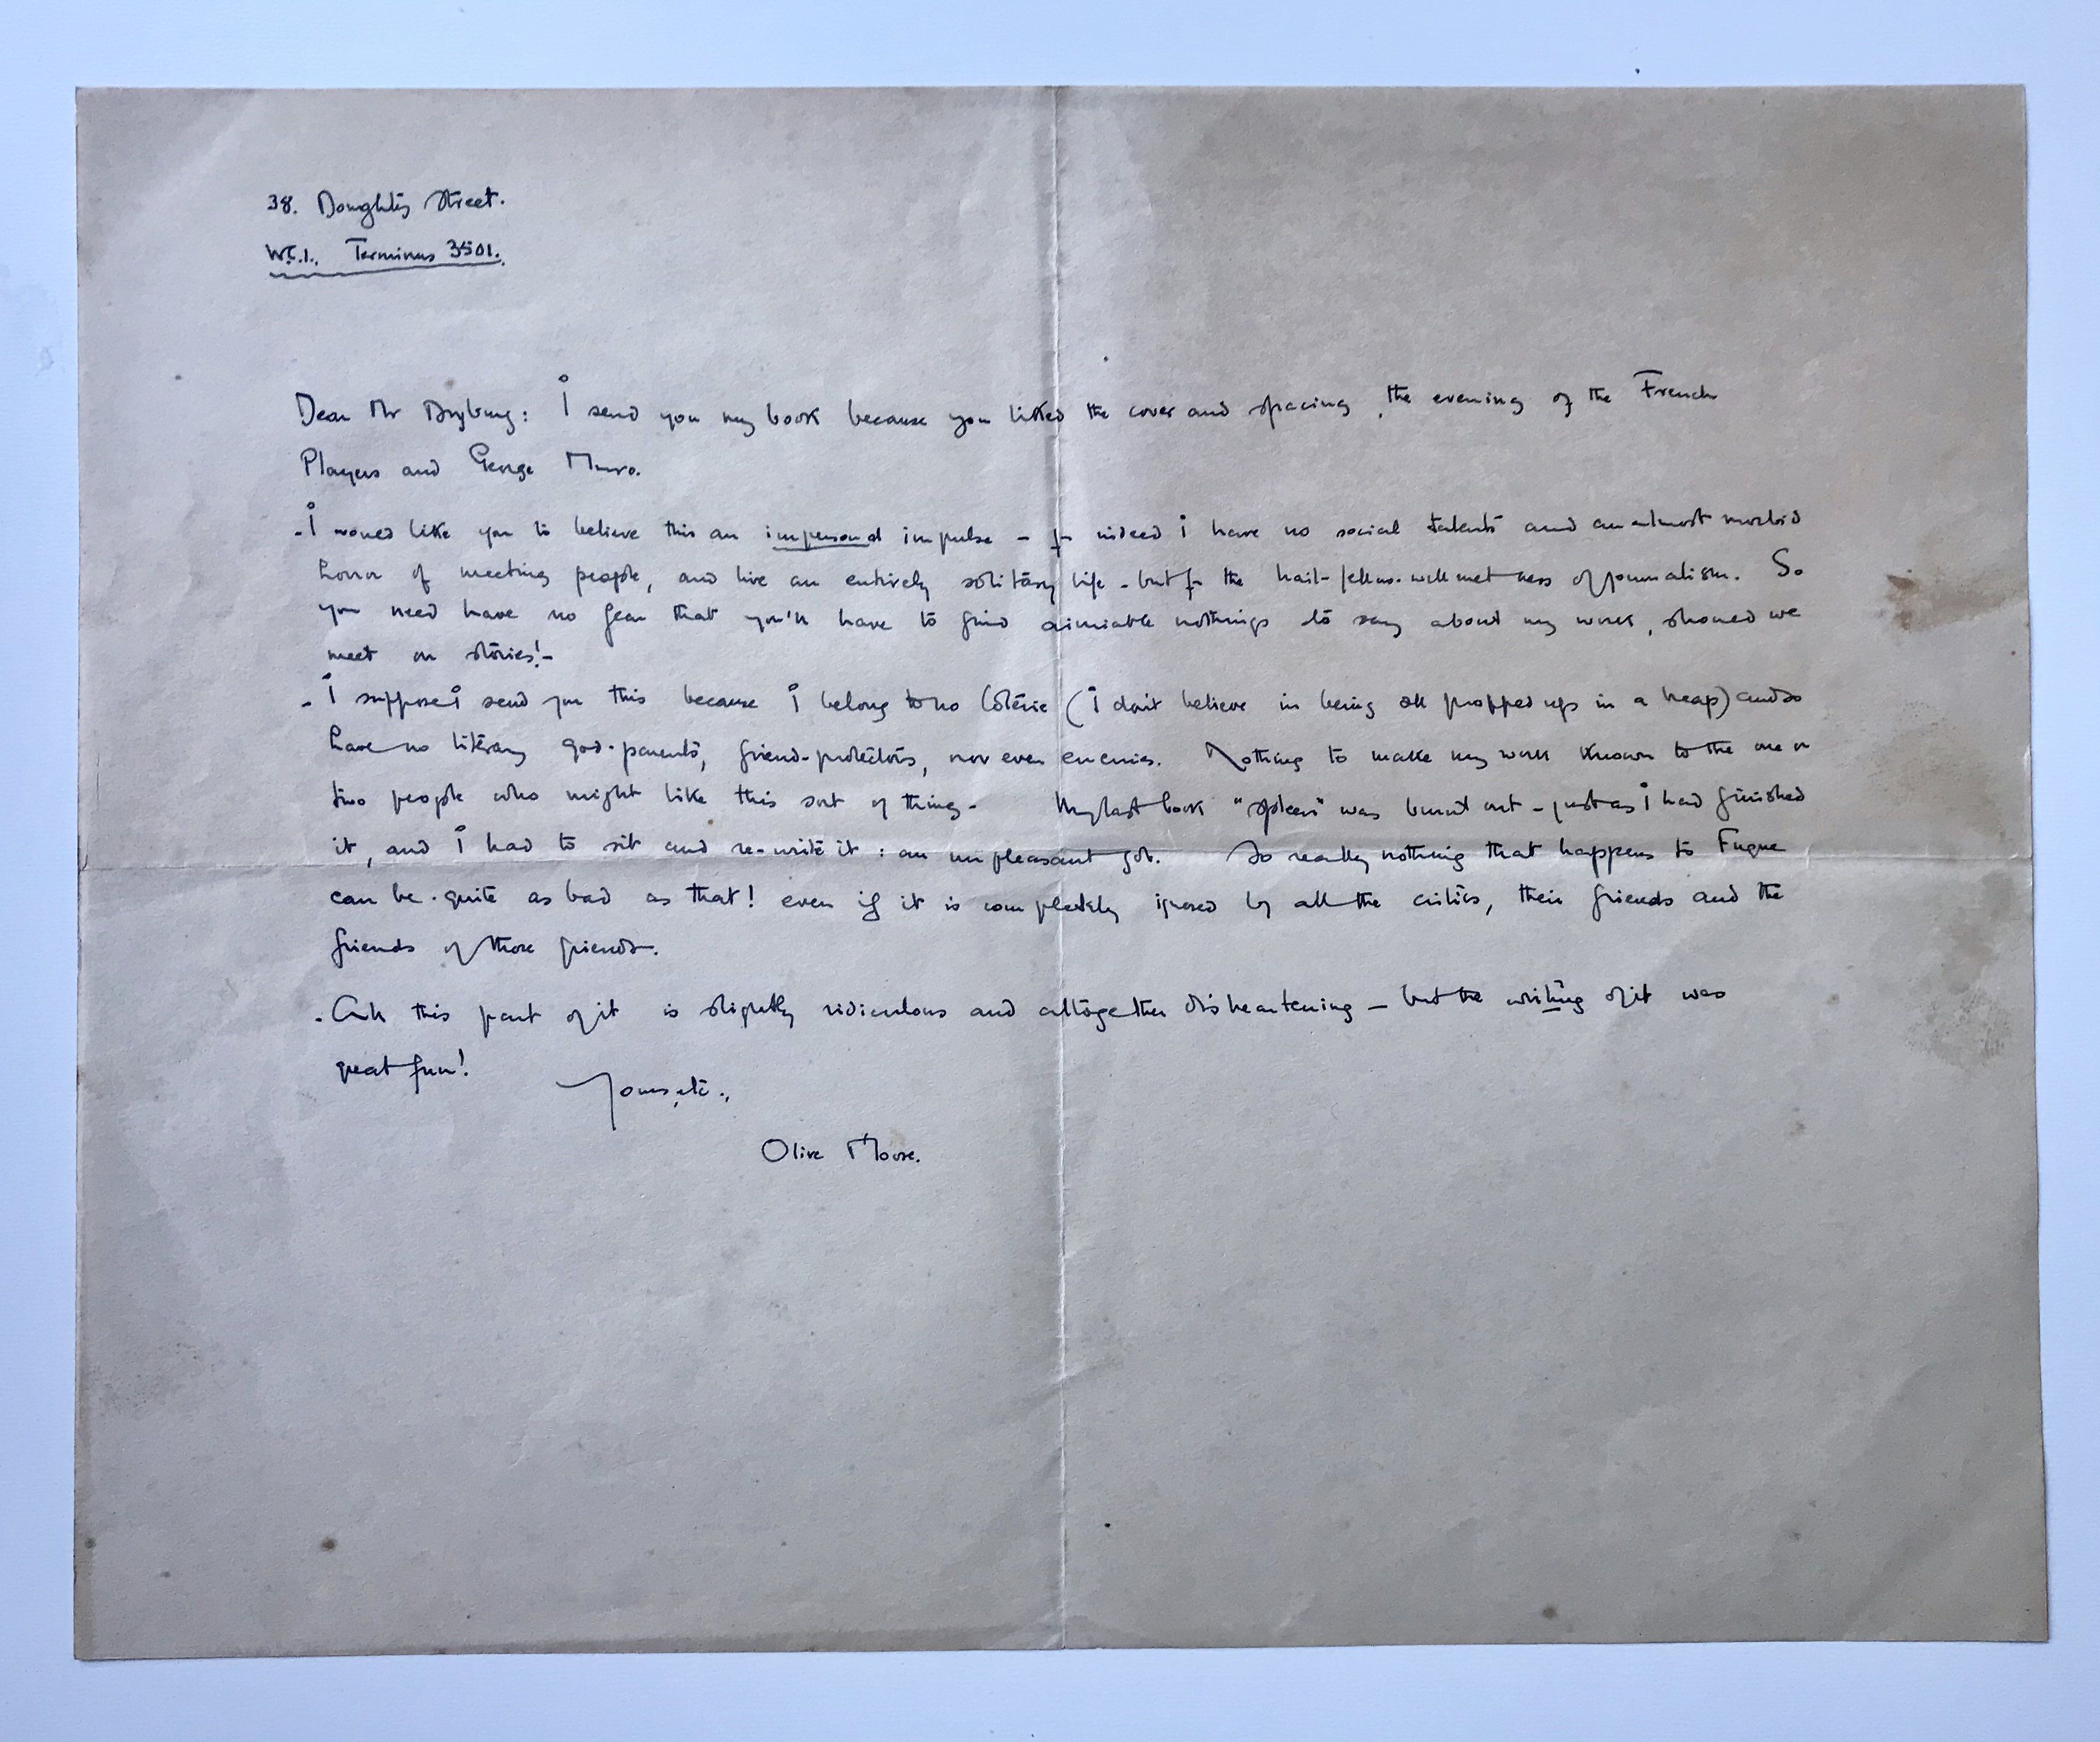 38. Doughty Street.
W.C.1. Terminus 3501.
Dear Mr Dryberg: I send you my book because you liked the cover and spacing, the evening of the French
Players and George Munro.
- I would like you to believe this an impersonal impulse - for indeed I have no social talents and an almost morbid
horror of meeting people, and live an entirely solitary life - but for the hail-fellow-well-met ness of journalism. So
you need have no fear that you'll have to find aimiable nothings to say about my work, should we
meet on stories!-
- I suppose I send you this because I belong to no Côterie (I don't believe in being all propped up in a heap) and so
have no literary god-parents, friend-protectors, nor even enemies. Nothing to make my work known to the one or
two people who might like this sort of thing - My last book "Spleen" was burnt out - just as I had finished
it, and I had to sit and re-write it : an unpleasant job. So really nothing that happens to Fugue
can be quite as bad as that! even if it is completely ignored by all the critics, their friends and the
friends of those friends.
- All this part of it is slightly ridiculous and altogether disheartening - but the writing of it was
great fun!
Yours, etc.,
Olive Moore.